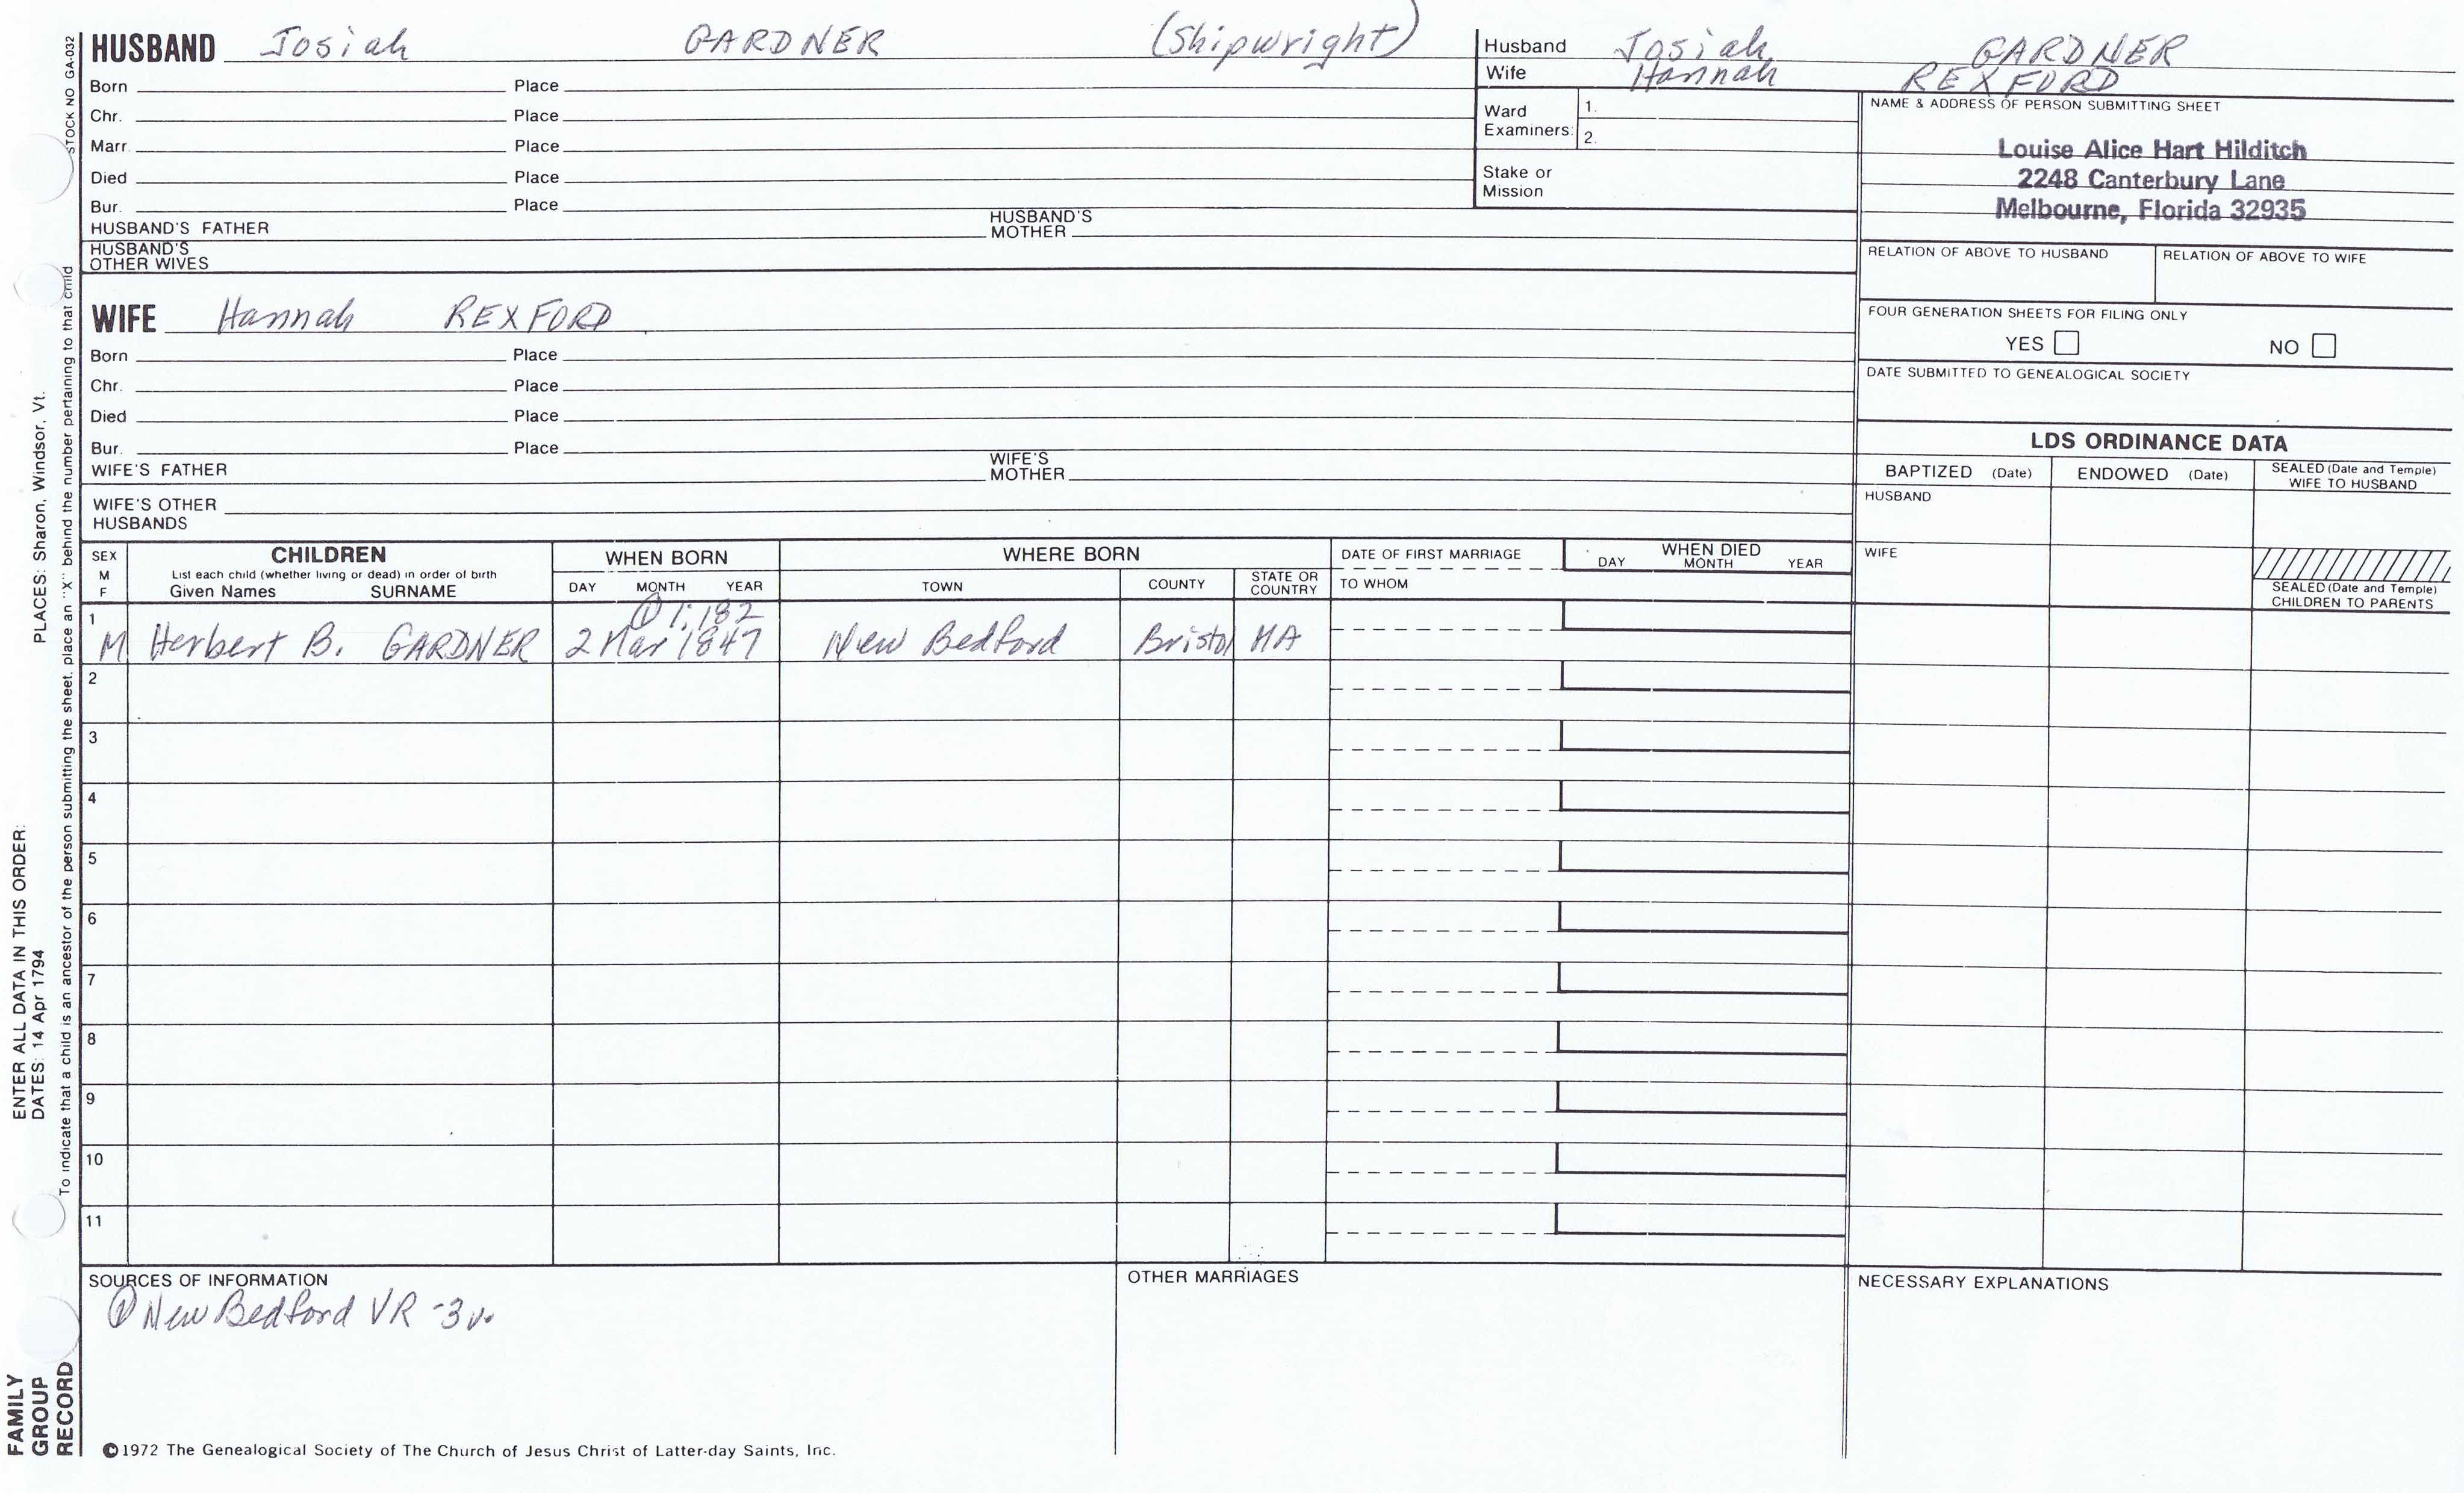 HUSBAND Josiah GARDNER (Shipwright)
Born Place
Chr. Place
Marr. Place
Died Place
Bur. Place
HUSBAND'S FATHER HUSBAND'S MOTHER
HUSBAND'S OTHER WIVES
WIFE Hannah REXFORD
Born Place
Chr. Place
Died Place
Bur. Place
WIFE'S FATHER WIFE'S MOTHER
WIFE'S OTHER HUSBANDS
Husband Josiah GARDNER
Wife Hannah REXFORD
Ward Examiners: 1.
2.
Stake or Mission
NAME & ADDRESS OF PERSON SUBMITTING SHEET
Louise Alice Hart Hilditch
2248 Canterbury Lane
Melbourne, Florida 32935
RELATION OF ABOVE TO HUSBAND RELATION OF ABOVE TO WIFE
FOUR GENERATION SHEETS FOR FILING ONLY
YES NO
DATE SUBMITTED TO GENEALOGICAL SOCIETY
LDS ORDINANCE DATA
BAPTIZED (Date) ENDOWED (Date) SEALED (Date and Temple) WIFE TO HUSBAND
HUSBAND
WIFE
SEALED (Date and Temple) CHILDREN TO PARENTS
SEX M F
CHILDREN
List each child (whether living or dead) in order of birth
Given Names SURNAME
WHEN BORN
DAY MONTH YEAR
WHERE BORN
TOWN COUNTY STATE OR COUNTRY
DATE OF FIRST MARRIAGE
TO WHOM
WHEN DIED
DAY MONTH YEAR
① 1:182
1 M Herbert B. GARDNER 2 Mar 1847 New Bedford Bristol MA
2
3
4
5
6
7
8
9
10
11
SOURCES OF INFORMATION
① New Bedford VR -3v.
OTHER MARRIAGES
NECESSARY EXPLANATIONS
©1972 The Genealogical Society of The Church of Jesus Christ of Latter-day Saints, Inc.
FAMILY GROUP RECORD
ENTER ALL DATA IN THIS ORDER:
DATES: 14 Apr 1794 PLACES: Sharon, Windsor, Vt.
To indicate that a child is an ancestor of the person submitting the sheet, place an "X" behind the number pertaining to that child
STOCK NO GA-032